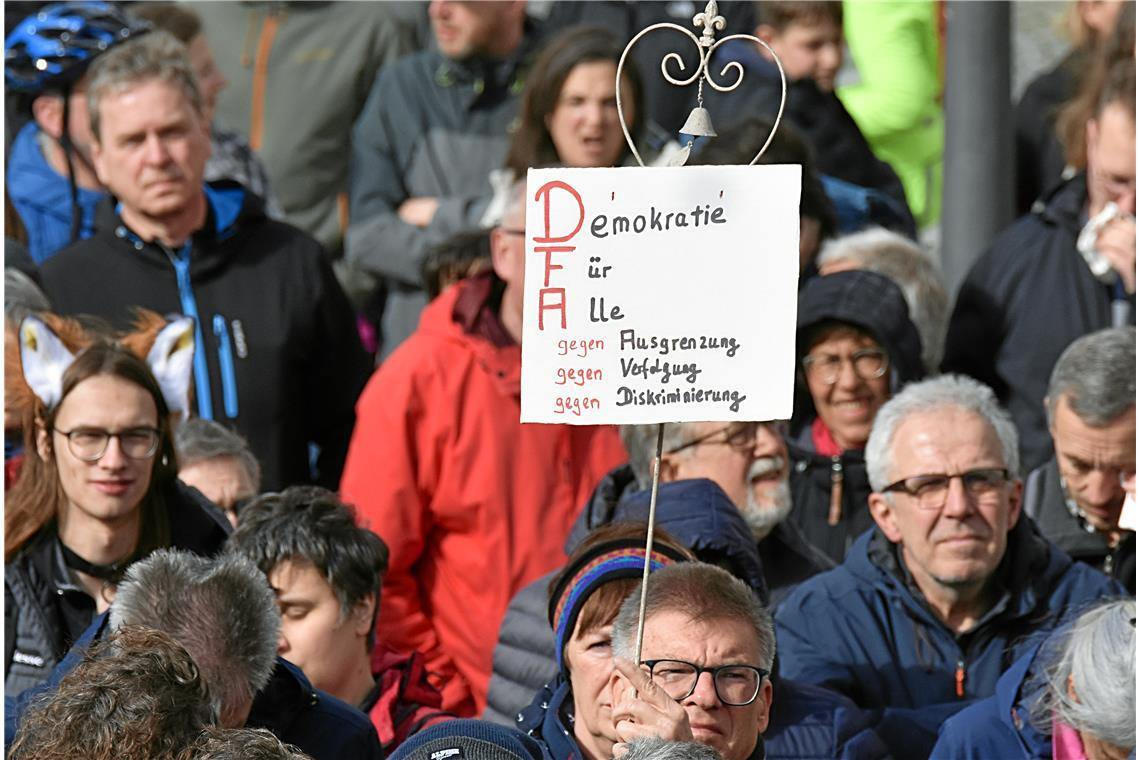 Demokratie
Für
Alle
gegen Ausgrenzung
gegen Verfolgung
gegen Diskriminierung